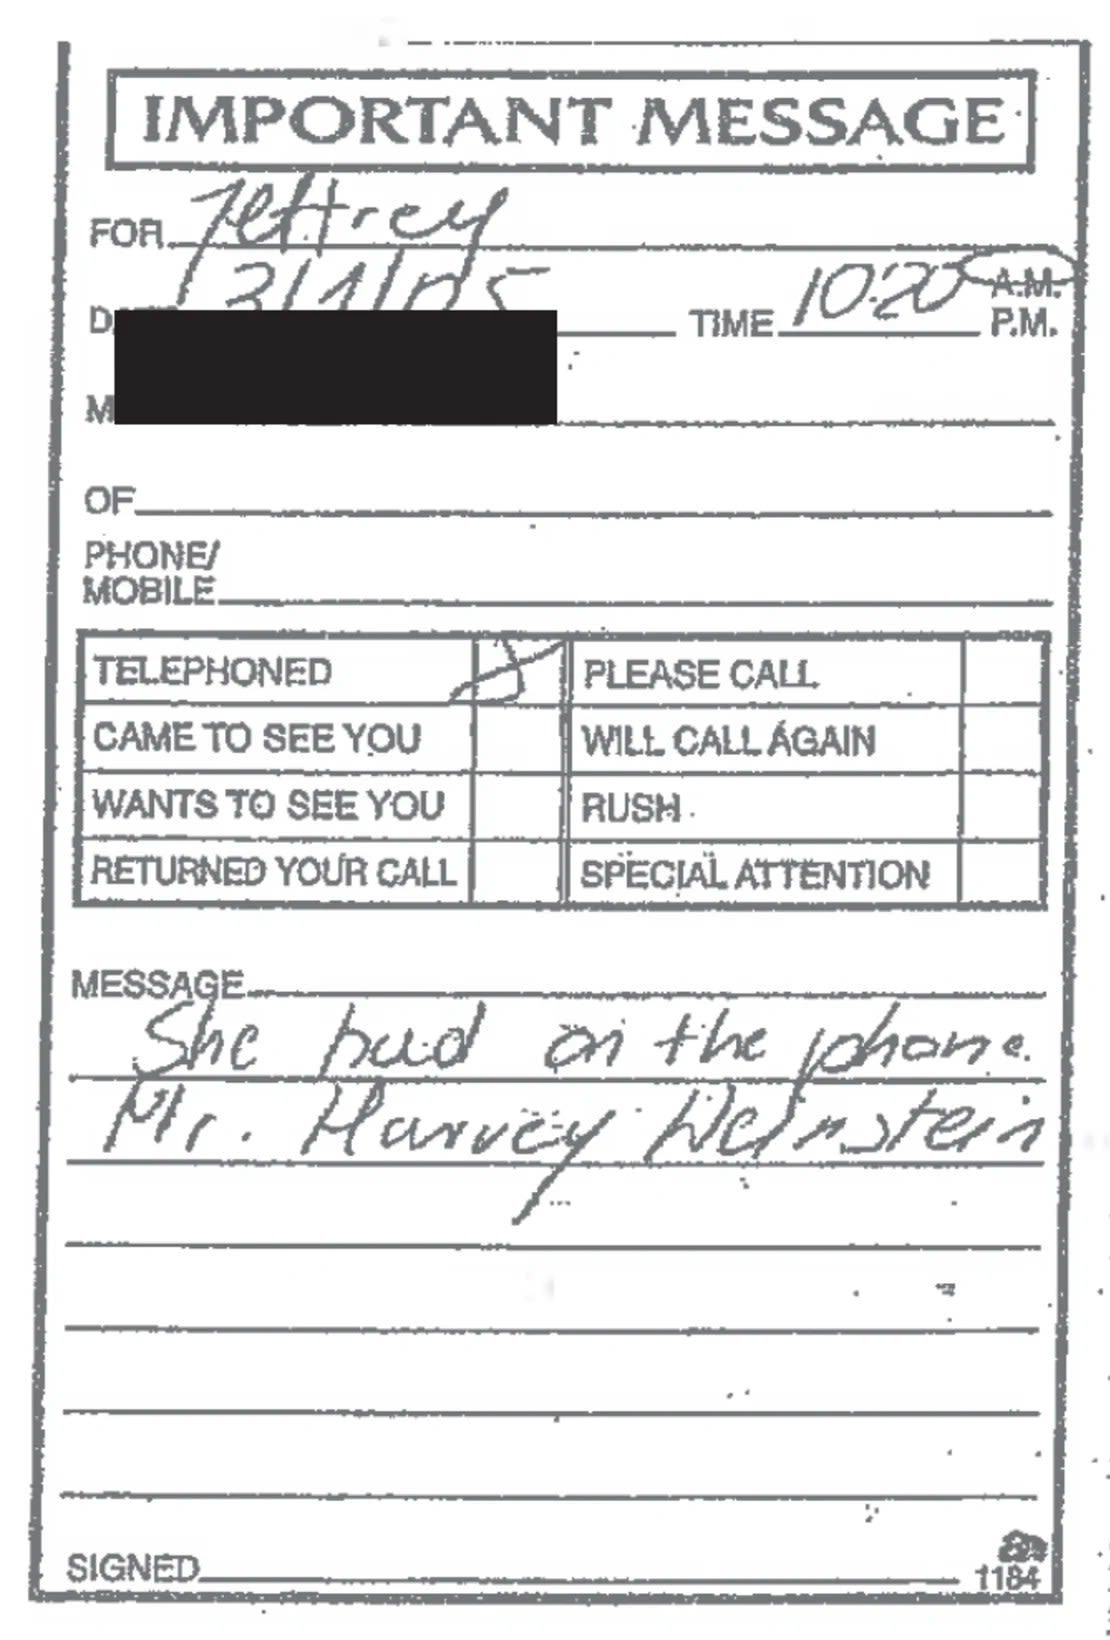 IMPORTANT MESSAGE
FOR Jeffrey
3/1/05 TIME 10:20 A.M.
P.M.
M
OF
PHONE/
MOBILE
TELEPHONED PLEASE CALL
CAME TO SEE YOU WILL CALL AGAIN
WANTS TO SEE YOU RUSH
RETURNED YOUR CALL SPECIAL ATTENTION
MESSAGE
She had on the phone.
Mr. Harvey Weinstein
SIGNED 1184